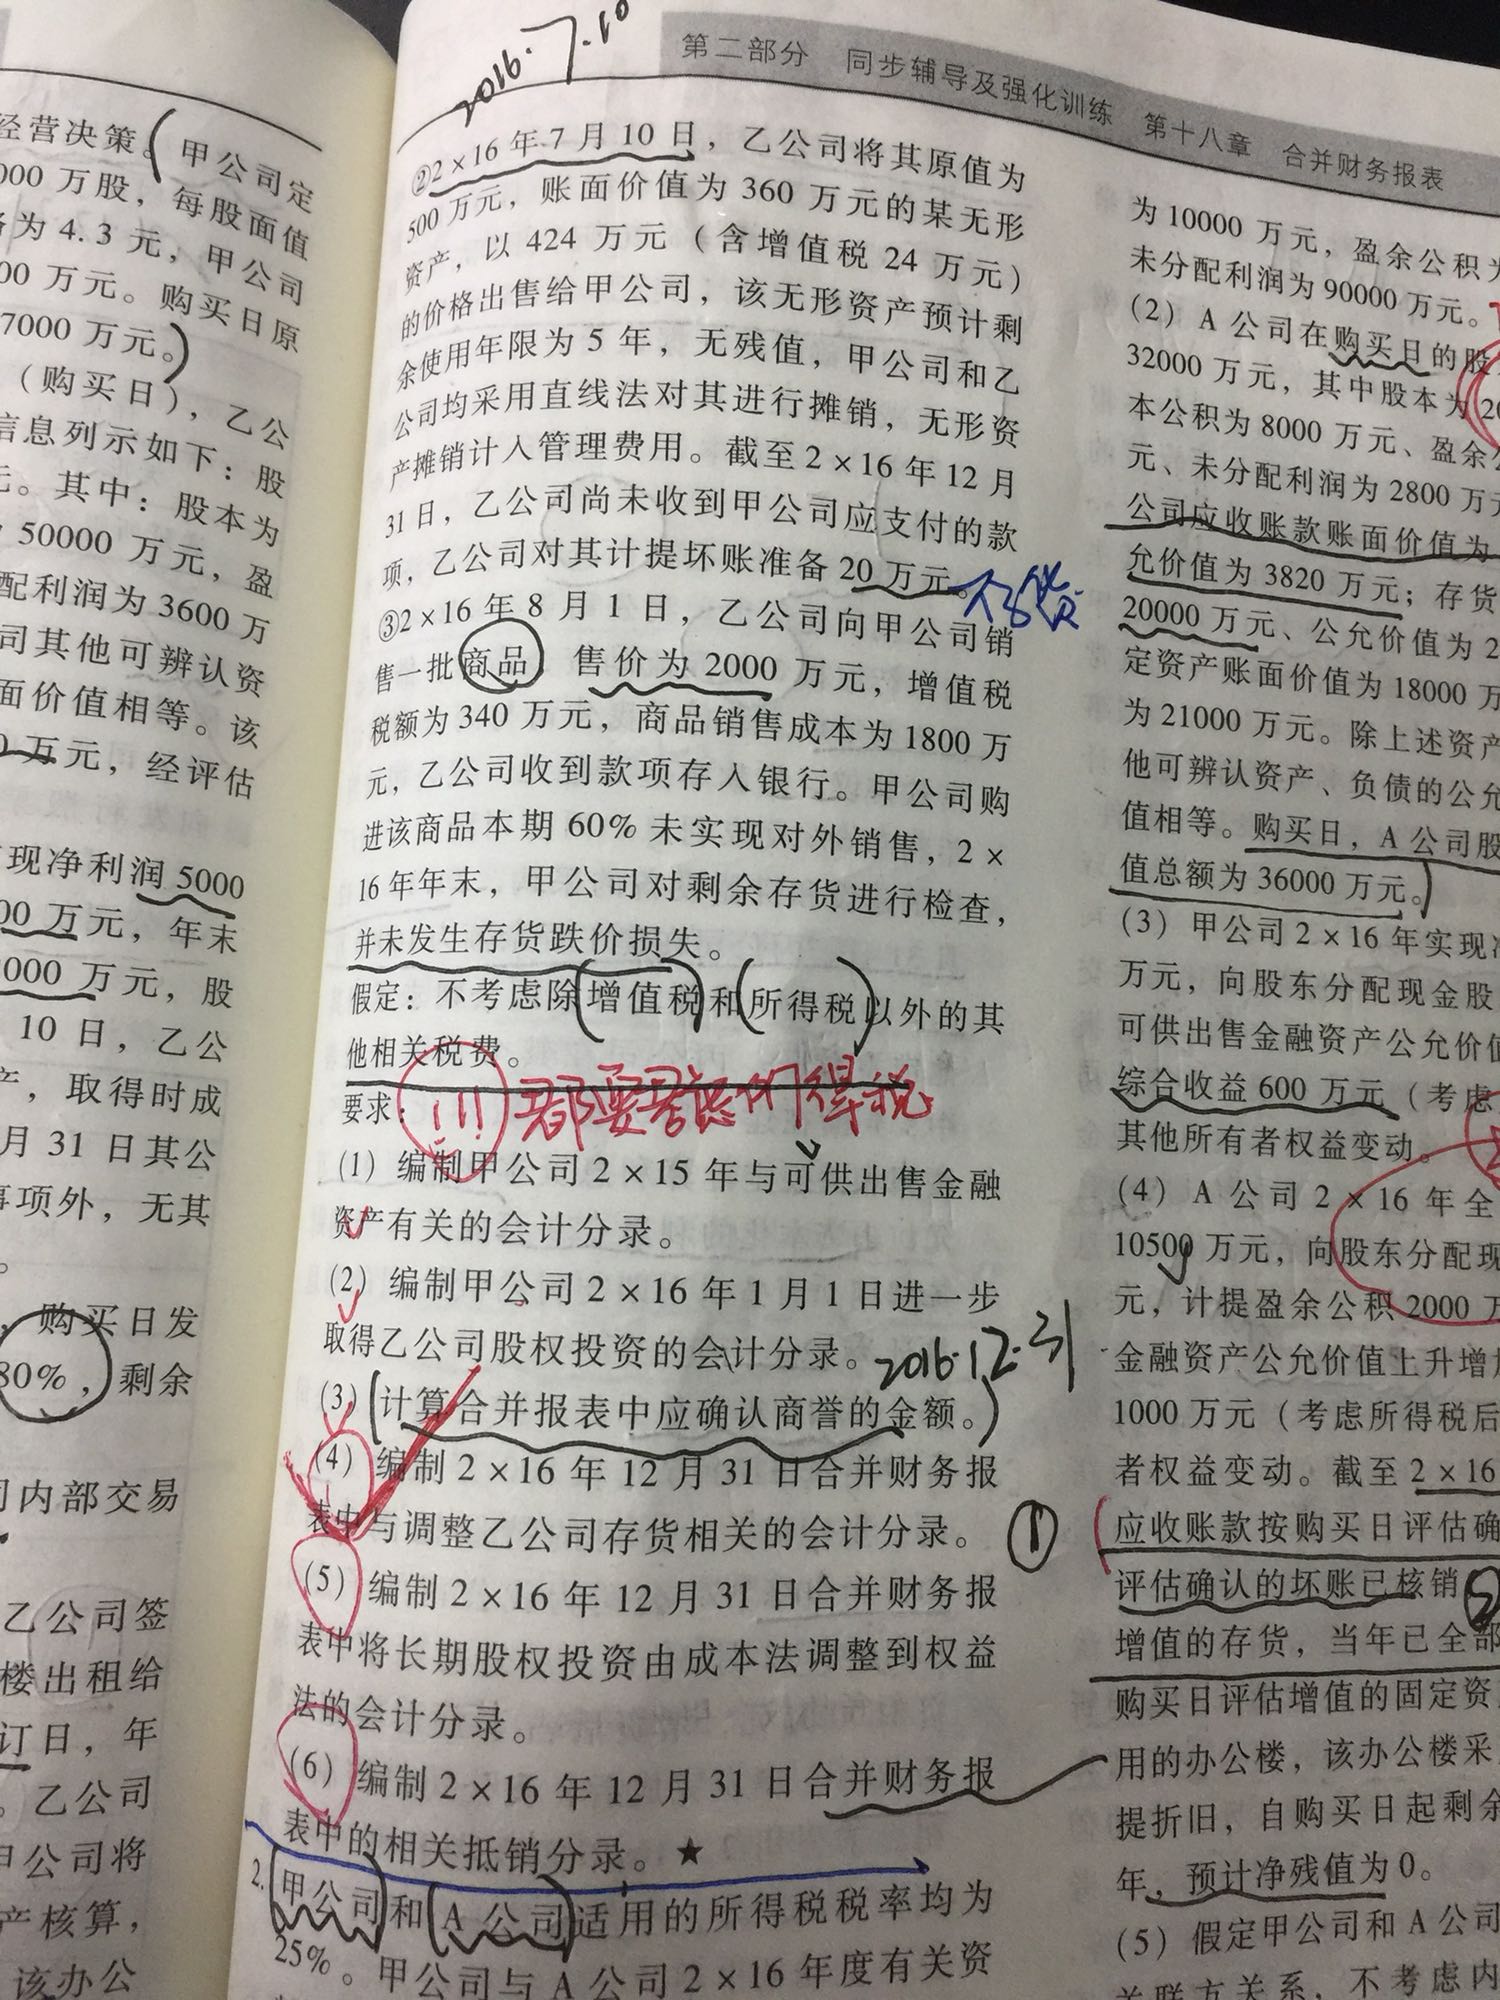 2016.7.10
第二部分 同步辅导及强化训练 第十八章 合并财务报表
经营决策。甲公司定
000万股，每股面值
为4.3元，甲公司
00万元。购买日原
7000万元。
（购买日），乙公
信息列示如下：股
元。其中：股本为
50000万元，盈
配利润为3600万
司其他可辨认资
面价值相等。该
0万元，经评估
现净利润5000
00万元，年末
000万元，股
10日，乙公
产，取得时成
月31日其公
事项外，无其
。
，购买日发
80%，剩余
司内部交易
乙公司签
楼出租给
订日，年
。乙公司
甲公司将
产核算，
该办公
②2×16年7月10日，乙公司将其原值为
500万元，账面价值为360万元的某无形
资产，以424万元（含增值税24万元）
的价格出售给甲公司，该无形资产预计剩
余使用年限为5年，无残值，甲公司和乙
公司均采用直线法对其进行摊销，无形资
产摊销计入管理费用。截至2×16年12月
31日，乙公司尚未收到甲公司应支付的款
项，乙公司对其计提坏账准备20万元。
③2×16年8月1日，乙公司向甲公司销
售一批商品，售价为2000万元，增值税
税额为340万元，商品销售成本为1800万
元，乙公司收到款项存入银行。甲公司购
进该商品本期60%未实现对外销售，2×
16年年末，甲公司对剩余存货进行检查，
并未发生存货跌价损失。
假定：不考虑除增值税和所得税以外的其
他相关税费。
要求：
!!! 都要考虑所得税
(1) 编制甲公司2×15年与可供出售金融
资产有关的会计分录。
(2) 编制甲公司2×16年1月1日进一步
取得乙公司股权投资的会计分录。
2016.12.31
(3) 计算合并报表中应确认商誉的金额。
(4) 编制2×16年12月31日合并财务报
表中与调整乙公司存货相关的会计分录。
①
(5) 编制2×16年12月31日合并财务报
表中将长期股权投资由成本法调整到权益
法的会计分录。
(6) 编制2×16年12月31日合并财务报
表中的相关抵销分录。★
2. 甲公司和A公司适用的所得税税率均为
25%。甲公司与A公司2×16年度有关资
为10000万元，盈余公积为
未分配利润为90000万元。
(2) A公司在购买日的股
32000万元，其中股本为20
本公积为8000万元、盈余公
元、未分配利润为2800万元
公司应收账款账面价值为
允价值为3820万元；存货
20000万元、公允价值为2
定资产账面价值为18000万
为21000万元。除上述资产
他可辨认资产、负债的公允
值相等。购买日，A公司股
值总额为36000万元。
(3) 甲公司2×16年实现净
万元，向股东分配现金股
可供出售金融资产公允价值
综合收益600万元（考虑
其他所有者权益变动。
(4) A公司2×16年全
10500万元，向股东分配现
元，计提盈余公积2000万
金融资产公允价值上升增加
1000万元（考虑所得税后
者权益变动。截至2×16
应收账款按购买日评估确
评估确认的坏账已核销
②
增值的存货，当年已全部
购买日评估增值的固定资
用的办公楼，该办公楼采
提折旧，自购买日起剩余
年，预计净残值为0。
(5) 假定甲公司和A公司
关联方关系，不考虑内